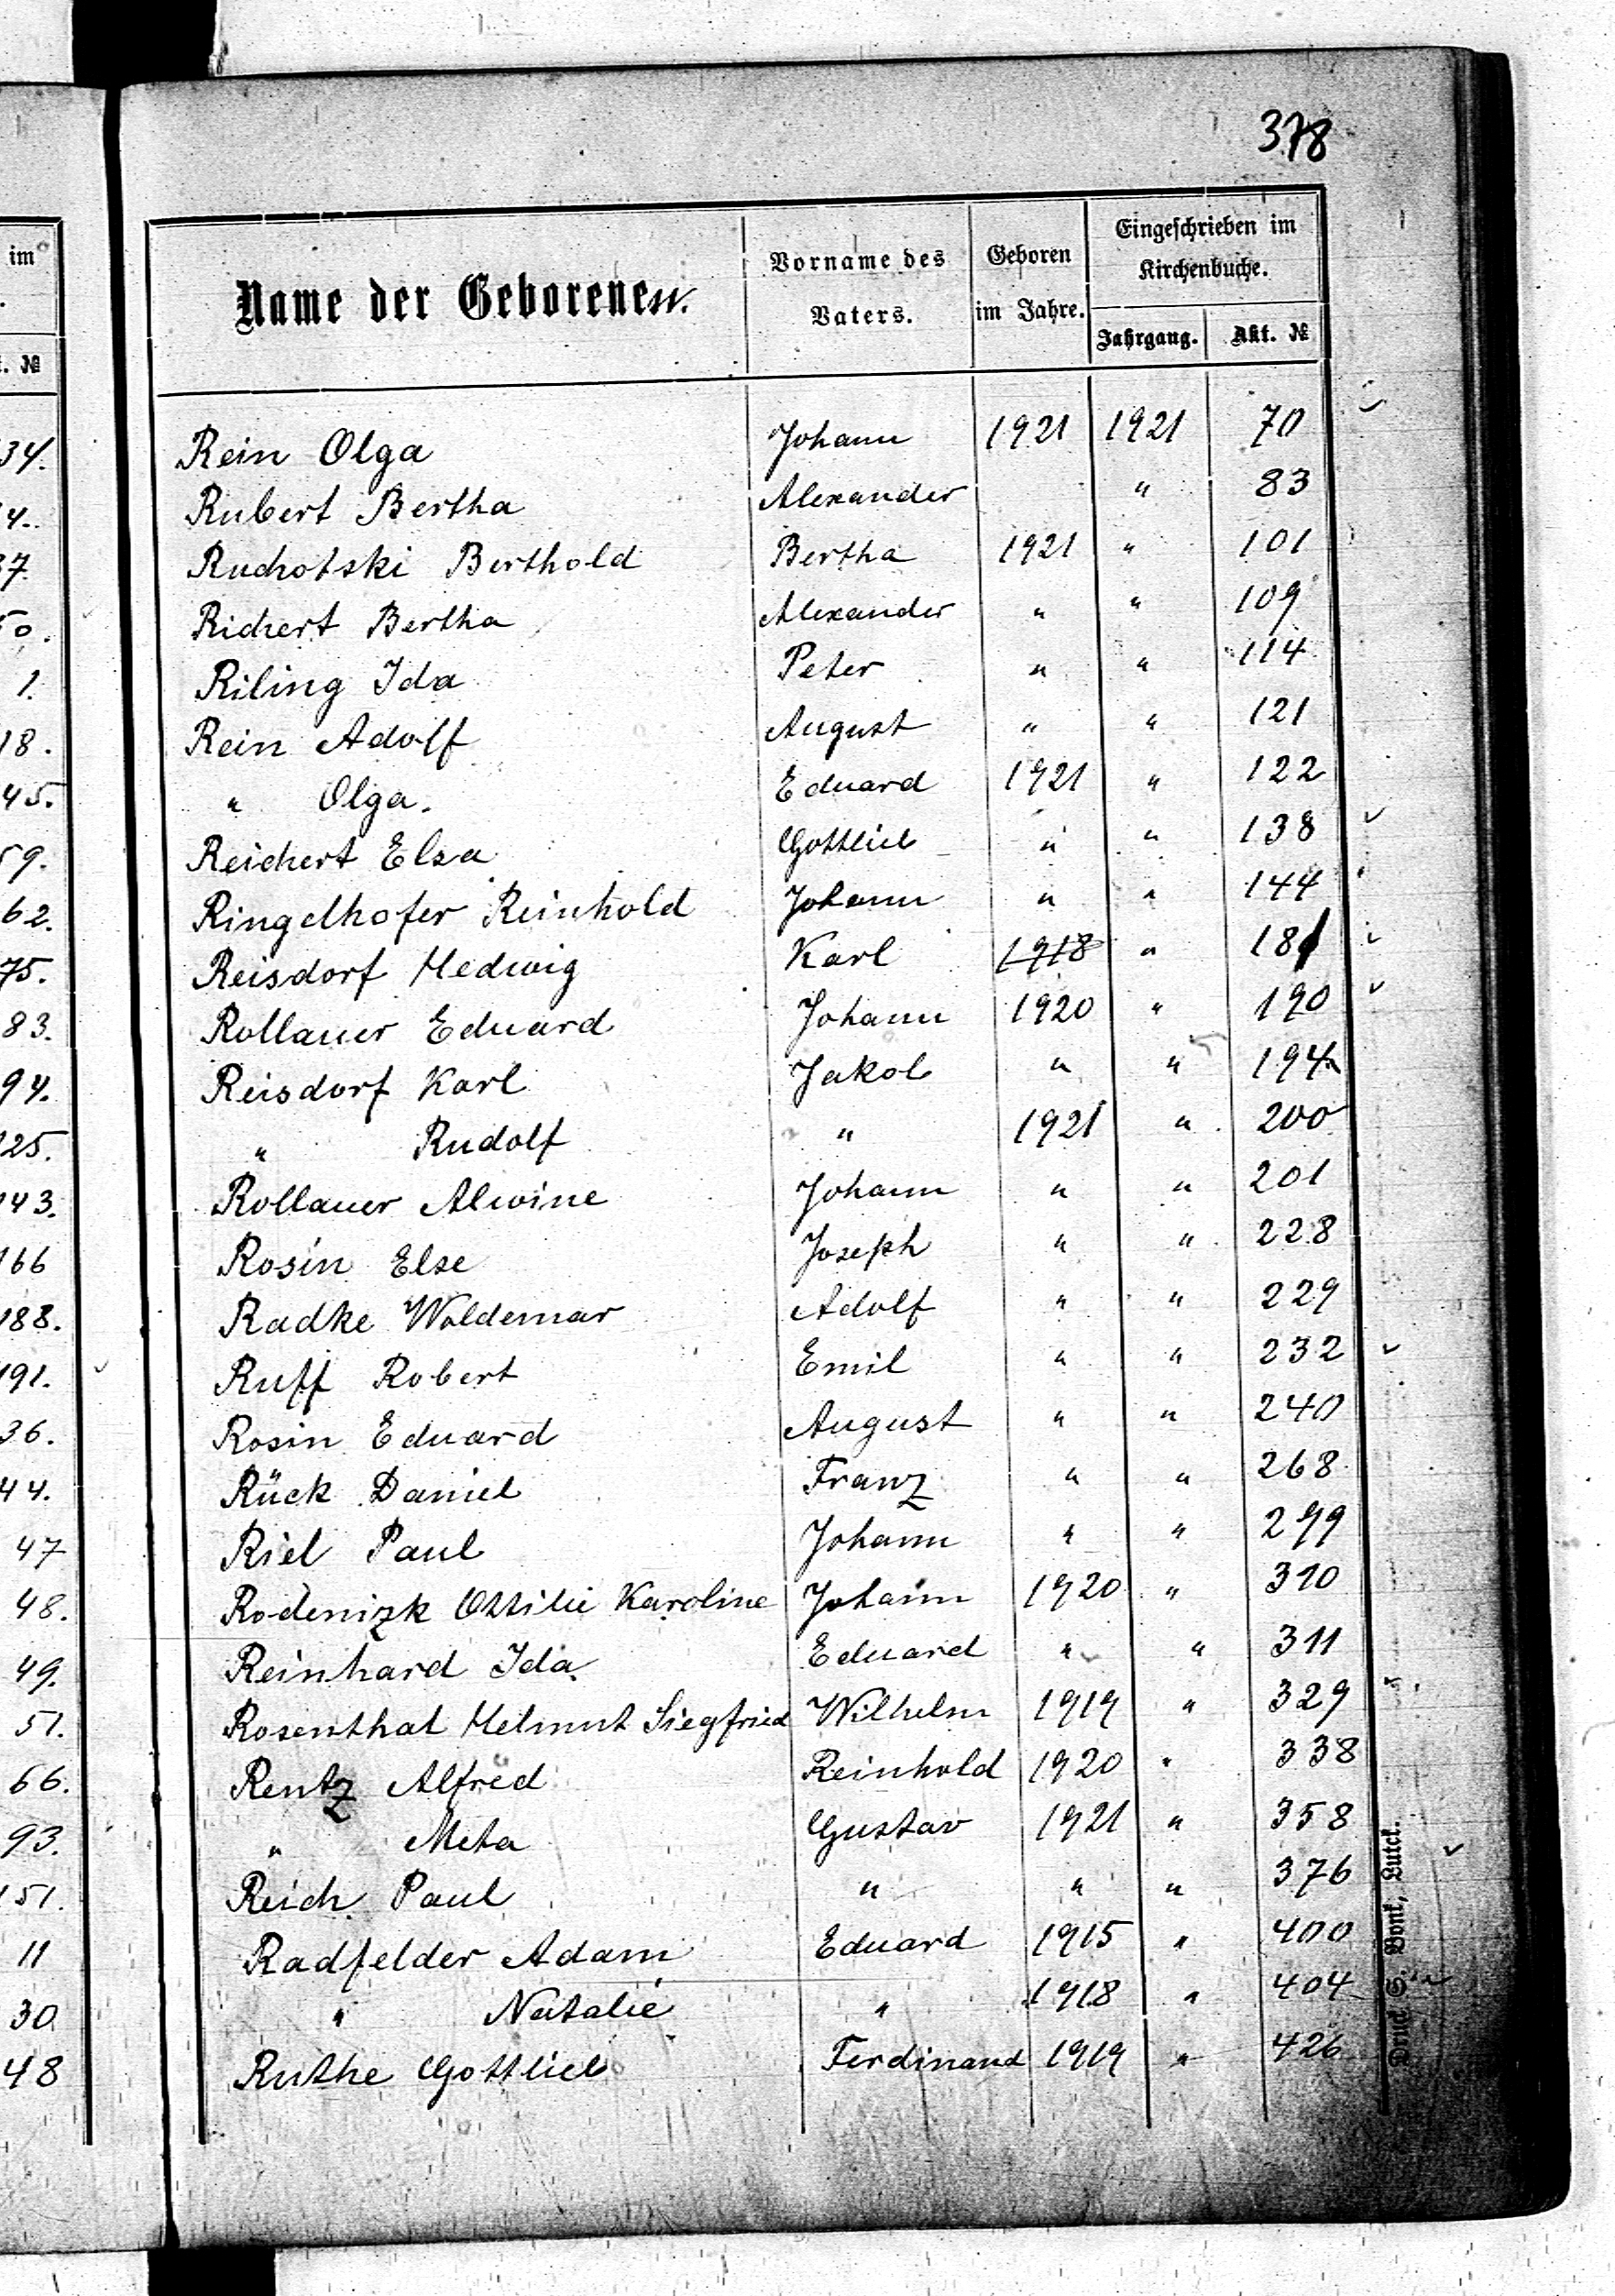 378
Name der Geborenen.
Vorname des Vaters.
Geboren im Jahre.
Eingeschrieben im Kirchenbuche.
Jahrgang.
Akt. №
Rein Olga Johann 1921 1921 70
Rubert Bertha Alexander " 83
Ruchotski Berthold Bertha 1921 " 101
Richert Bertha Alexander " " 109
Riling Ida Peter " " 114
Rein Adolf August " " 121
" Olga. Eduard 1921 " 122
Reichert Elsa Gottlieb " " 138
Ringelhofer Reinhold Johann " " 144
Reisdorf Hedwig Karl 1918 " 181
Rollauer Eduard Johann 1920 " 190
Reisdorf Karl Jakob " " 194
" Rudolf " 1921 " 200
Rollauer Alwine Johann " " 201
Rosin Else Joseph " " 228
Radke Woldemar Adolf " " 229
Ruff Robert Emil " " 232
Rosin Eduard August " " 240
Rück Daniel Franz " " 268
Riel Paul Johann " " 299
Rodenizk Ottilie Karoline Johann 1920 " 310
Reinhard Ida Eduard " " 311
Rosenthal Helmut Siegfried Wilhelm 1919 " 329
Rentz Alfred Reinhold 1920 " 338
" Meta Gustav 1921 " 358
Reich Paul " " " 376
Radfelder Adam Eduard 1915 " 400
" Natalie " 1918 " 404
Ruthe Gottlieb Ferdinand 1919 " 426
im
№
34.
4.
37.
50.
1.
18.
45.
59.
62.
75.
83.
94.
125.
143.
166
188.
191.
36.
44.
47
48.
49.
51.
66.
93.
151.
11
30
48